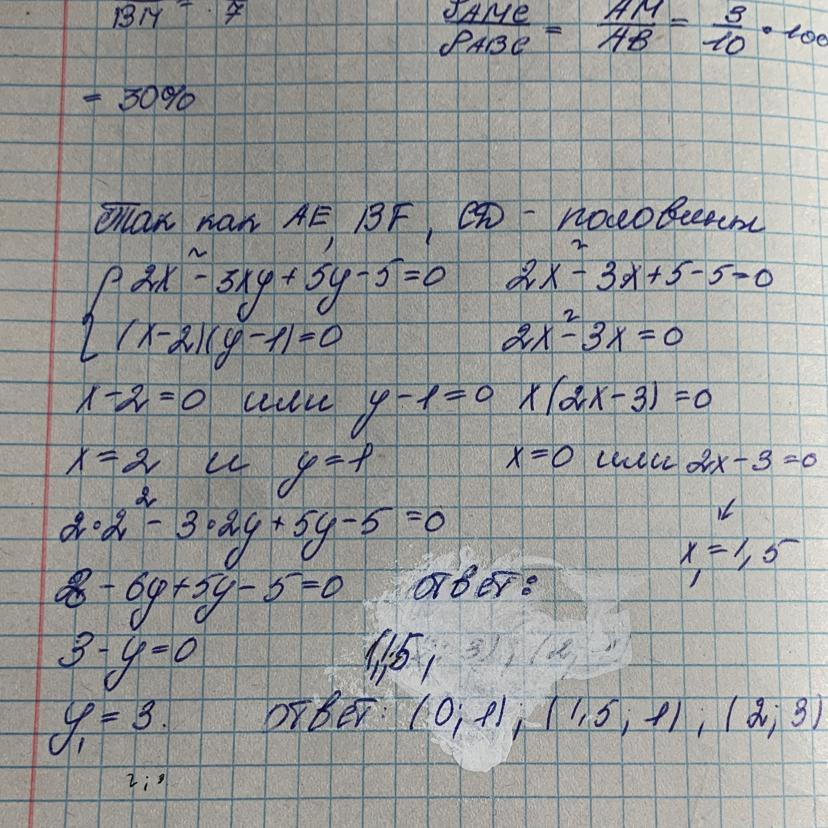 BM = 7
S AMC / S ABC = AM / AB = 3 / 10 • 100
= 30%
Так как AE, BF, CD - половины
{ 2x² - 3xy + 5y - 5 = 0
2x² - 3x + 5 - 5 = 0
(x - 2)(y - 1) = 0
2x² - 3x = 0
x - 2 = 0 или y - 1 = 0
x(2x - 3) = 0
x = 2 и y = 1
x = 0 или 2x - 3 = 0
2•2² - 3•2y + 5y - 5 = 0
↙
x₁ = 1,5
8 - 6y + 5y - 5 = 0
ответ:
3 - y = 0
1,5,
y₁ = 3.
ответ: (0; 1); (1,5; 1); (2; 3)